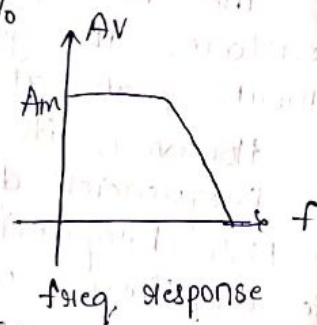 %
Av
Am
f
freq. response